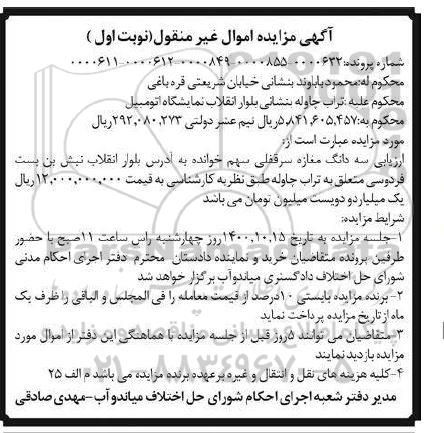 آگهی مزایده اموال غیر منقول(نوبت اول )
شماره پرونده:۰۰۰۰۶۳۲-۰۰۰۰۸۵۵-۰۰۰۰۸۴۹-۰۰۰۰۶۱۲-۰۰۰۰۶۱۱
محکوم له:محمود باباوند بنشانی خیابان شریعتی قره باغی
محکوم علیه :تراب جاوله بنشانی بلوار انقلاب نمایشگاه اتومبیل
محکوم به:۵,۸۴۱,۶۰۵,۴۵۷ریال نیم عشر دولتی ۲۹۲,۰۸۰,۲۷۳ریال
مورد مزایده عبارت است از:
ارزیابی سه دانگ مغازه سرقفلی سهم خوانده به آدرس بلوار انقلاب نبش بن بست
فردوسی متعلق به تراب جاوله طبق نظریه کارشناسی به قیمت ۱۲,۰۰۰,۰۰۰,۰۰۰ریال
یک میلیارد و دویست میلیون تومان می باشد
شرایط مزایده:
۱-جلسه مزایده به تاریخ ۱۴۰۰,۱۰,۱۵روز چهارشنبه راس ساعت ۱۱صبح با حضور
طرفین پرونده متقاضیان خرید و نماینده دادستان محترم دفتر اجرای احکام مدنی
شورای حل اختلاف دادگستری میاندوآب برگزار خواهد شد
۲- برنده مزایده بایستی ۱۰درصد از قیمت معامله را فی المجلس و الباقی را ظرف یک
ماه از تاریخ مزایده پرداخت نماید
۳-متقاضیان می توانند ۵روز قبل از جلسه مزایده با هماهنگی این دفتر از اموال مورد
مزایده بازدید نمایند
۴-کلیه هزینه های نقل و انتقال و غیره برعهده برنده مزایده می باشد م الف ۲۵
مدیر دفتر شعبه اجرای احکام شورای حل اختلاف میاندوآب-مهدی صادقی
۰۲۱-۸۸۳۴۹۶۷۰-۵